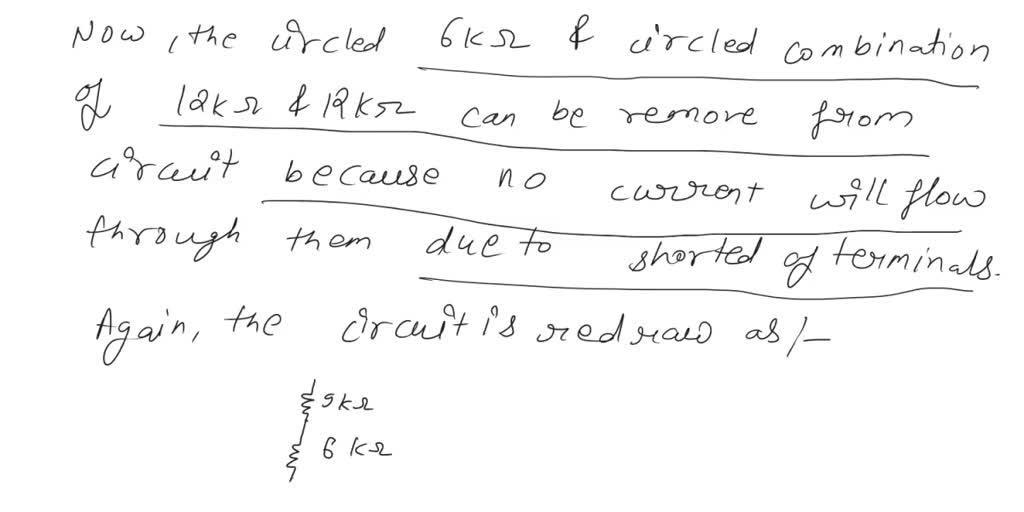 Now, the circled 6kΩ & circled combination
of 12kΩ & 12kΩ can be remove from
circuit because no current will flow
through them due to shorted of terminals.
Again, the circuit is redraw as/-
5kΩ
6 kΩ